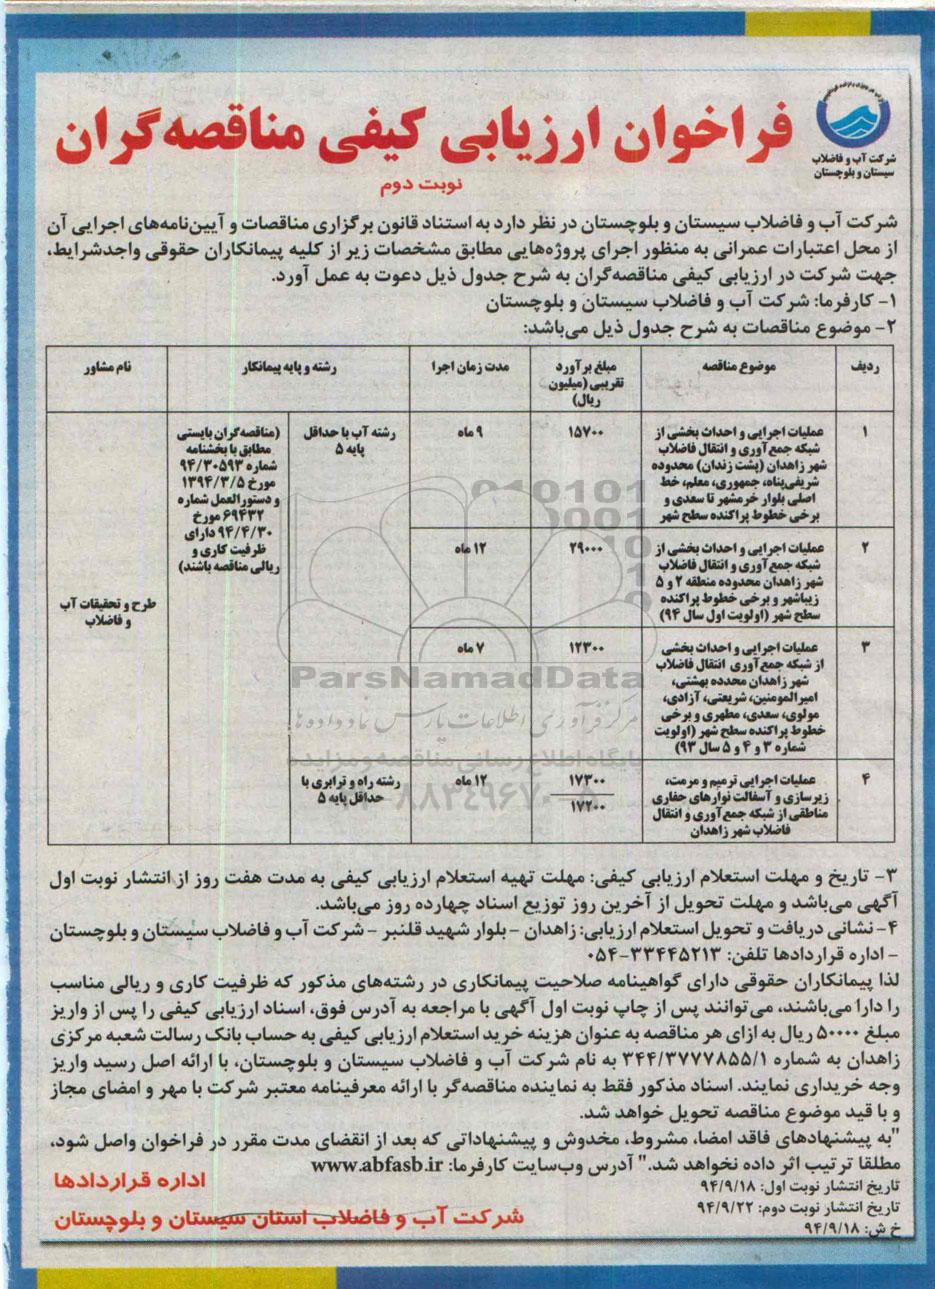 شرکت آب و فاضلاب
سیستان و بلوچستان
فراخوان ارزیابی کیفی مناقصه‌گران
نوبت دوم
شرکت آب و فاضلاب سیستان و بلوچستان در نظر دارد به استناد قانون برگزاری مناقصات و آیین‌نامه‌های اجرایی آن
از محل اعتبارات عمرانی به منظور اجرای پروژه‌هایی مطابق مشخصات زیر از کلیه پیمانکاران حقوقی واجدشرایط،
جهت شرکت در ارزیابی کیفی مناقصه‌گران به شرح جدول ذیل دعوت به عمل آورد.
۱- کارفرما: شرکت آب و فاضلاب سیستان و بلوچستان
۲- موضوع مناقصات به شرح جدول ذیل می‌باشد:
ردیف
موضوع مناقصه
مبلغ برآورد
تقریبی (میلیون
ریال)
مدت زمان اجرا
رشته و پایه پیمانکار
نام مشاور
۱
عملیات اجرایی و احداث بخشی از
شبکه جمع‌آوری و انتقال فاضلاب
شهر زاهدان (پشت زندان) محدوده
شریفی‌پناه، جمهوری، معلم، خط
اصلی بلوار خرمشهر تا سعدی و
برخی خطوط پراکنده سطح شهر
۱۵۷۰۰
۹ ماه
رشته آب با حداقل
پایه ۵
(مناقصه‌گران بایستی
مطابق با بخشنامه
شماره ۹۴/۳۰۵۹۳
مورخ ۱۳۹۴/۳/۵
و دستورالعمل شماره
۶۹۴۳۲ مورخ
۹۴/۴/۳۰ دارای
ظرفیت کاری و
ریالی مناقصه باشند)
طرح و تحقیقات آب
و فاضلاب
۲
عملیات اجرایی و احداث بخشی از
شبکه جمع‌آوری و انتقال فاضلاب
شهر زاهدان محدوده منطقه ۲ و ۵
زیباشهر و برخی خطوط پراکنده
سطح شهر (اولویت اول سال ۹۴)
۲۹۰۰۰
۱۲ ماه
۳
عملیات اجرایی و احداث بخشی
از شبکه جمع‌آوری انتقال فاضلاب
شهر زاهدان محدده بهشتی،
امیرالمومنین، شریعتی، آزادی،
مولوی، سعدی، مطهری و برخی
خطوط پراکنده سطح شهر (اولویت
شماره ۳ و ۴ و ۵ سال ۹۳)
۱۲۳۰۰
۷ ماه
۴
عملیات اجرایی ترمیم و مرمت،
زیرسازی و آسفالت نوارهای حفاری
مناطقی از شبکه جمع‌آوری و انتقال
فاضلاب شهر زاهدان
۱۷۳۰۰
۱۷۲۰۰
۱۲ ماه
رشته راه و ترابری با
حداقل پایه ۵
ParsNamadData
مرکز فرآوری اطلاعات پارس نماد داده‌ها
پایگاه اطلاع رسانی مناقصه و مزایده
۳- تاریخ و مهلت استعلام ارزیابی کیفی: مهلت تهیه استعلام ارزیابی کیفی به مدت هفت روز از انتشار نوبت اول
آگهی می‌باشد و مهلت تحویل از آخرین روز توزیع اسناد چهارده روز می‌باشد.
۴- نشانی دریافت و تحویل استعلام ارزیابی: زاهدان - بلوار شهید قلنبر - شرکت آب و فاضلاب سیستان و بلوچستان
- اداره قراردادها تلفن: ۳۳۴۴۵۲۱۳-۰۵۴
لذا پیمانکاران حقوقی دارای گواهینامه صلاحیت پیمانکاری در رشته‌های مذکور که ظرفیت کاری و ریالی مناسب
را دارا می‌باشند، می‌توانند پس از چاپ نوبت اول آگهی با مراجعه به آدرس فوق، اسناد ارزیابی کیفی را پس از واریز
مبلغ ۵۰۰۰۰ ریال به ازای هر مناقصه به عنوان هزینه خرید استعلام ارزیابی کیفی به حساب بانک رسالت شعبه مرکزی
زاهدان به شماره ۳۴۴/۳۷۷۷۸۵۵/۱ به نام شرکت آب و فاضلاب سیستان و بلوچستان، با ارائه اصل رسید واریز
وجه خریداری نمایند. اسناد مذکور فقط به نماینده مناقصه‌گر با ارائه معرفینامه معتبر شرکت با مهر و امضای مجاز
و با قید موضوع مناقصه تحویل خواهد شد.
"به پیشنهادهای فاقد امضا، مشروط، مخدوش و پیشنهاداتی که بعد از انقضای مدت مقرر در فراخوان واصل شود،
مطلقا ترتیب اثر داده نخواهد شد." آدرس وب‌سایت کارفرما: www.abfasb.ir
تاریخ انتشار نوبت اول: ۹۴/۹/۱۸
تاریخ انتشار نوبت دوم: ۹۴/۹/۲۲
خ ش: ۹۴/۹/۱۸
اداره قراردادها
شرکت آب و فاضلاب استان سیستان و بلوچستان